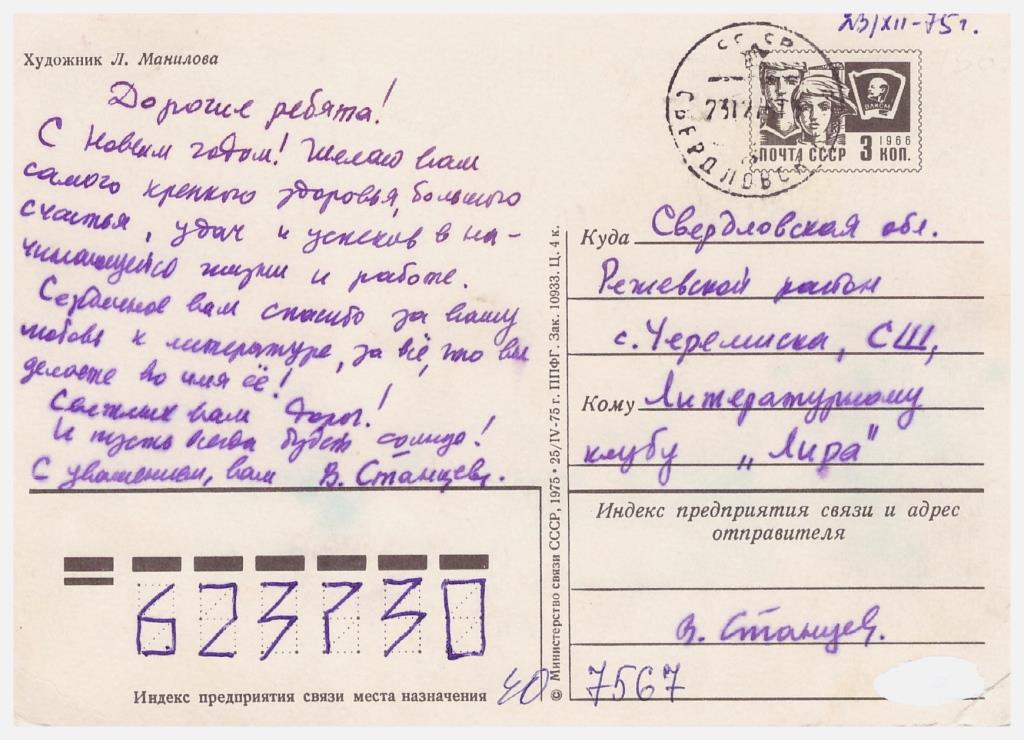 23/XII-75г.
Художник Л. Манилова
СССР
СВЕРДЛОВСК
ВЛКСМ
1966
ПОЧТА СССР 3 КОП.
Дорогие ребята!
С Новым годом! Желаю вам
самого крепкого здоровья, большого
счастья, удач и успехов в на-
чинающейся жизни и работе.
Сердечное вам спасибо за вашу
любовь к литературе, за всё, что вы
делаете во имя её!
Светлых вам дорог!
И пусть всегда будет солнце!
С уважением, вам В. Станцев.
Куда Свердловская обл.
Режевской район
с. Черемиска, СШ,
Кому Литературному
клубу „Лира"
Индекс предприятия связи и адрес
отправителя
В. Станцев.
7567
40
© Министерство связи СССР, 1975 • 25/IV-75 г. ППФГ. Зак. 10933. Ц. 4 к.
623730
Индекс предприятия связи места назначения